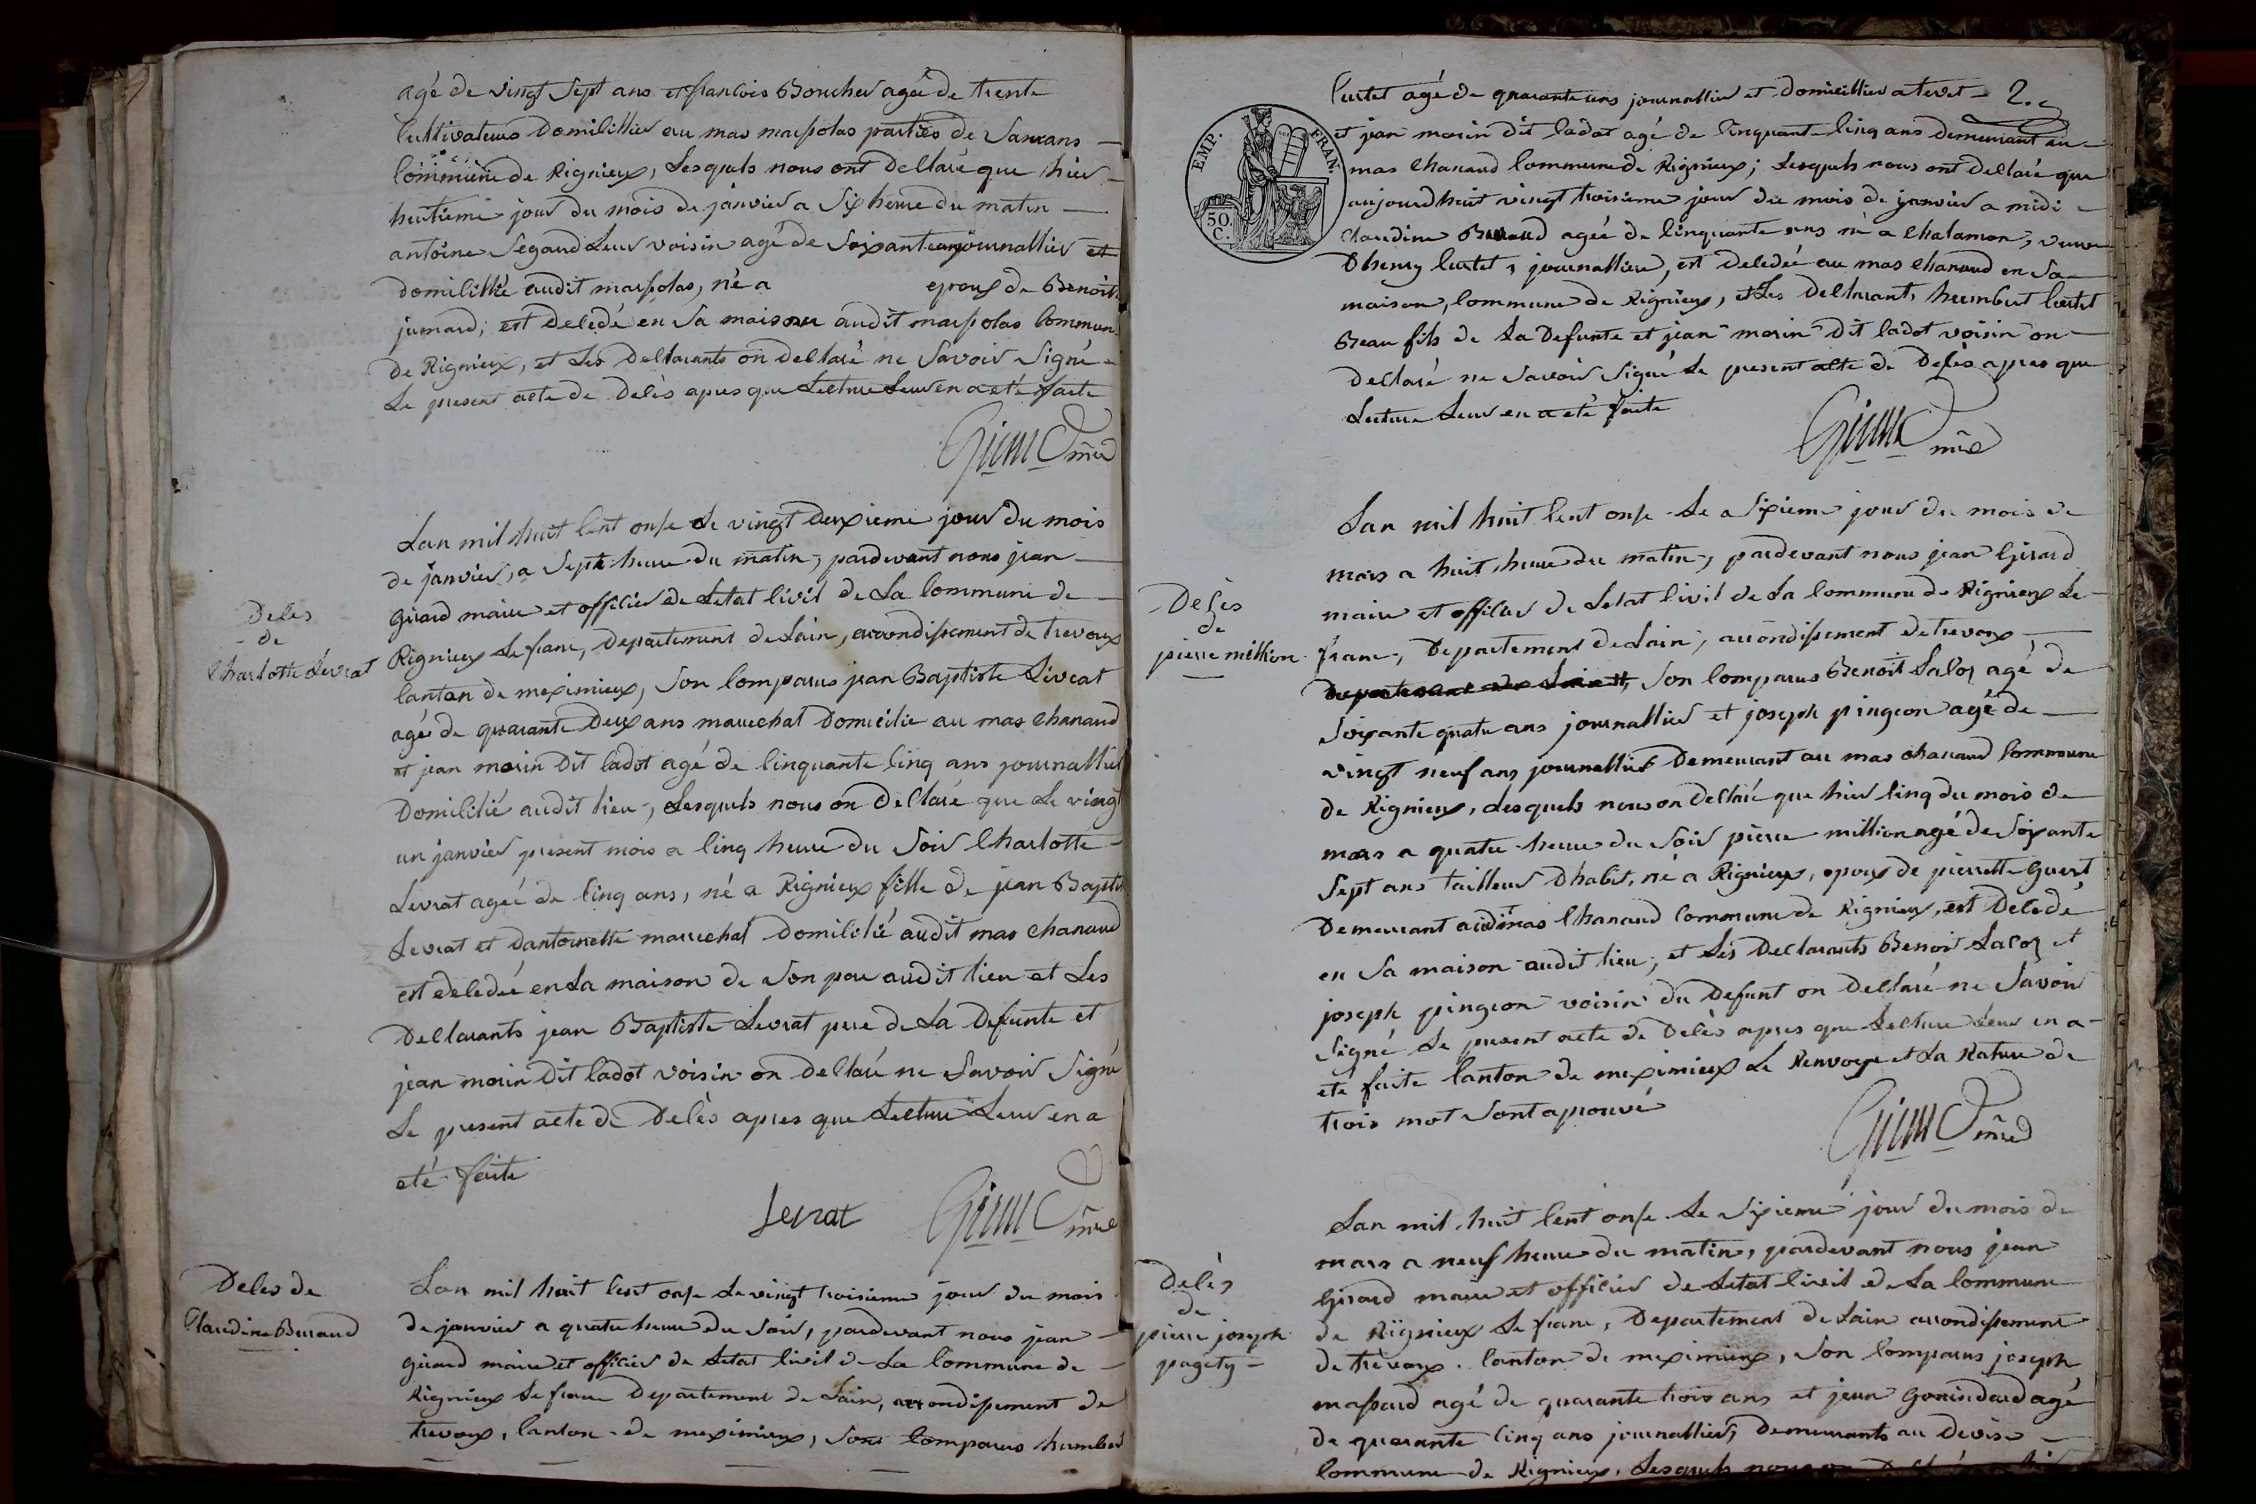 agé de vingt Sept ans et francois Boucher agée de trente
Cultivateurs Domicillier au mas maspolas parties de Sansans
Commune de Rignieux, Lesquels nous ont Declaré que hier
huitieme jour du mois de janvier a Six heure du matin
antoine Segaud Leur voisin agé de Soixante ans journallier et
Domicillié audit maspolas, né a epoux de Benoite
jumard, est Decedé en Sa maison audit maspolas Commune
de Rignieux, et Les Declarants on declaré ne Savoir Signé
Le present acte de Decès apres que Lecture Leur en a eté faite
Girard mre
Deces
de
Charlotte Levrat
Lan mil huit Cent onse Le vingt Deuxieme jour du mois
de janvier, a Sept heure du matin, pardevant nous jean
Girard maire et officier de Letat Civil de La Commune de
Rignieux Le franc, Departement de Lain, arrondissement de trevoux
Canton de meximieux, Son Comparus jean Baptiste Livrat
agé de quarante Deux ans marechal Domicilié au mas Chanaud
et jean morin Dit Cadot agé de Cinquante Cinq ans journallier
Domicilié audit lieu, Lesquels nous on Declaré que Le vingt
un janvier present mois a Cinq heure du Soir Charlotte
Levrat agée de Cinq ans, né a Rignieux fille de jean Baptiste
Levrat et Dantoinette marechal Domicilié audit mas Chanaud
est decedée en La maison de Son pere audit lieu et Les
Declarants jean Baptiste Levrat pere de La Defunte et
jean morin Dit Cadot voisin on Declaré ne Savoir Signé
Le present acte de Decès apres que Lecture Leur en a
eté faite
Levrat Girard mre
Deces de
Claudine Buraud
Lan mil huit Cent onse Le vingt troisieme jour du mois
de janvier a quatre heure du Soir, pardevant nous jean
Girard maire et officier de Letat Civil de La Commune de
Rignieux Le franc Departement de Lain, arrondissement de
trevoux, Canton de meximieux, Sont Comparus humbert
Curtet agé de quarante ans journallier et Domicillier a 2.
et jean morin dit Cadot agé de Cinquante Cinq ans Demeurant au
mas Chanaud Commune de Rignieux; Lesquels nous ont Declaré que
aujourdhuit vingt troisieme jour du mois de janvier a midi
Claudine Buraud agée de Cinquante ans né a Chalamon, veuve
Dhenry Curtet, journalliere, est Decedée au mas Chanaud en Sa
maison, Commune de Rignieux, et Les Declarant, humbert Curtet
Beau fils de La Defunte et jean morin Dit Cadot voisin on
Declaré ne Savoir Signé Le present acte de Decès apres que
Lecture Leur en a eté faite
EMP. FRAN.
50 C.
Girard mre
Decès
de
pierre million
Lan mil huit Cent onse Le a Sixieme jour du mois de
mars a huit heure du matin, pardevant nous jean Girard
maire et officier de Letat Civil de La Commune de Rignieux Le
franc, Departement de Lain, arrondissement de trevoux
Son Comparus Benoit Lacoz agé de
Soixante quatre ans journallier et joseph pingeon agé de
vingt neuf ans journallier Demeurant au mas chanaud Commune
de Rignieux, Lesquels nous on Declaré que hier Cinq du mois de
mars a quatre heure du Soir pierre million agé de Soixante
Sept ans tailleur Dhabit, né a Rignieux, epoux de pierrette Guerst
Demeurant audit mas Chanaud Commune de Rignieux, est Decedé
en Sa maison audit lieu, et Les Declarants Benoit Lacoz et
joseph pingeon voisin du Defunt on Declaré ne Savoir
Signé Le present acte de Decès apres que Lecture Leur en a
eté faite Canton de meximieux Le Renvoye et La Rature de
trois mot Sont aprouvé
Girard mre
Decès
de
pierre joseph
pagety
Lan mil huit Cent onse Le Sixieme jour du mois de
mars a neuf heure du matin, pardevant nous jean
Girard maire et officier de Letat Civil de La Commune
de Rignieux Le franc, Departement de Lain arrondissement
de trevoux. Canton de meximieux, Son Comparus joseph
massard agé de quarante trois ans et jean Gonindard agé
de quarante Cinq ans journallier, Demeurants au Devise
Commune de Rignieux, Lesquels nous on